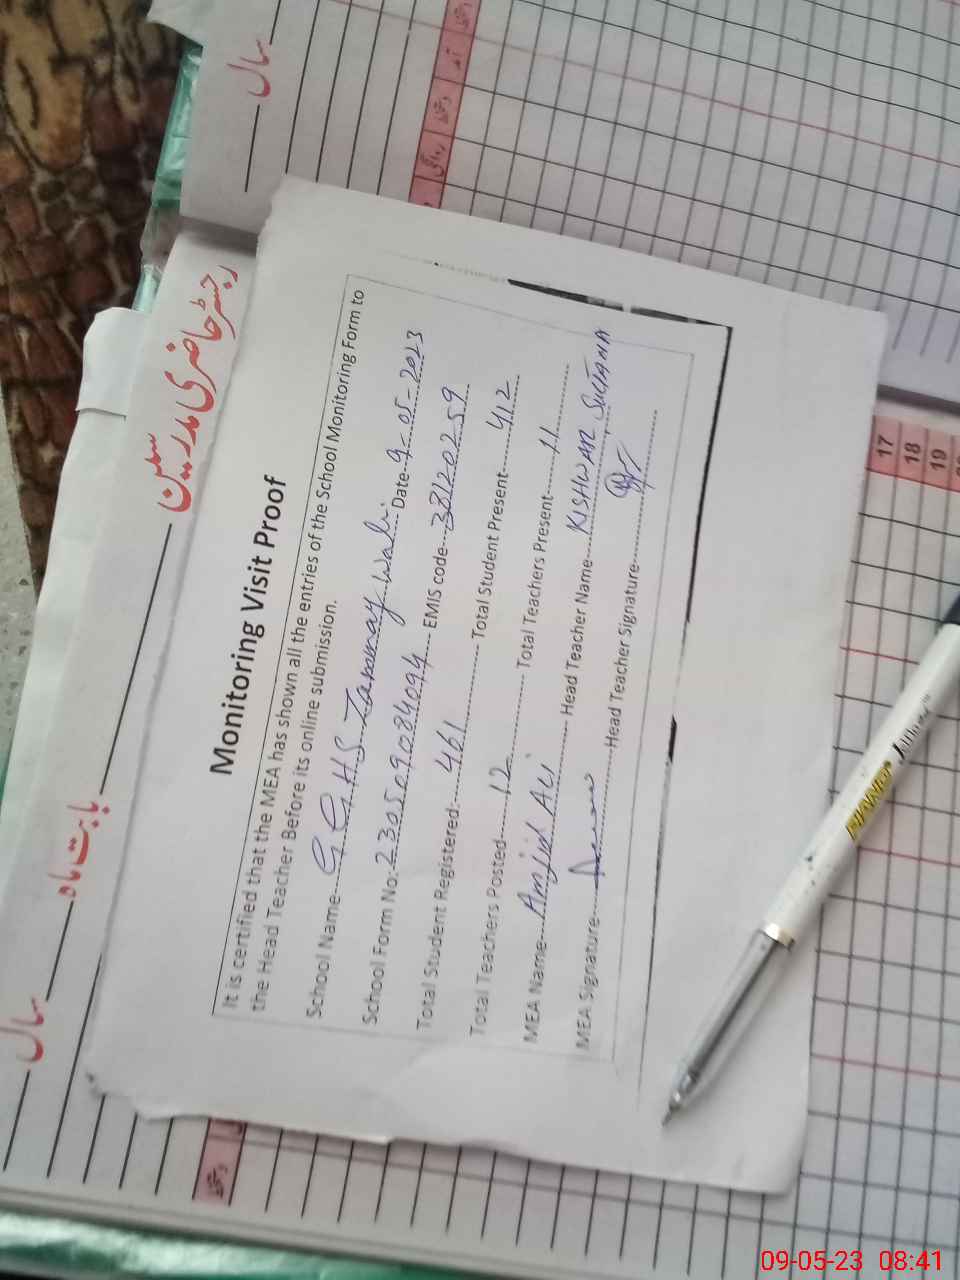 Monitoring Visit Proof
It is certified that the MEA has shown all the entries of the School Monitoring Form to
the Head Teacher Before its online submission.
School Name GGHS Jammay Wali Date 9-05-2023
School Form No: 230509084094 EMIS code 38120259
Total Student Registered: 461 Total Student Present 412
Total Teachers Posted 12 Total Teachers Present 11
MEA Name Amjid Ali Head Teacher Name KISHWAR SULTANA
MEA Signature Head Teacher Signature
رجسٹر حاضری مدرسین
بابت ماہ
سال
سال
17
18
19
PIANO
09-05-23 08:41